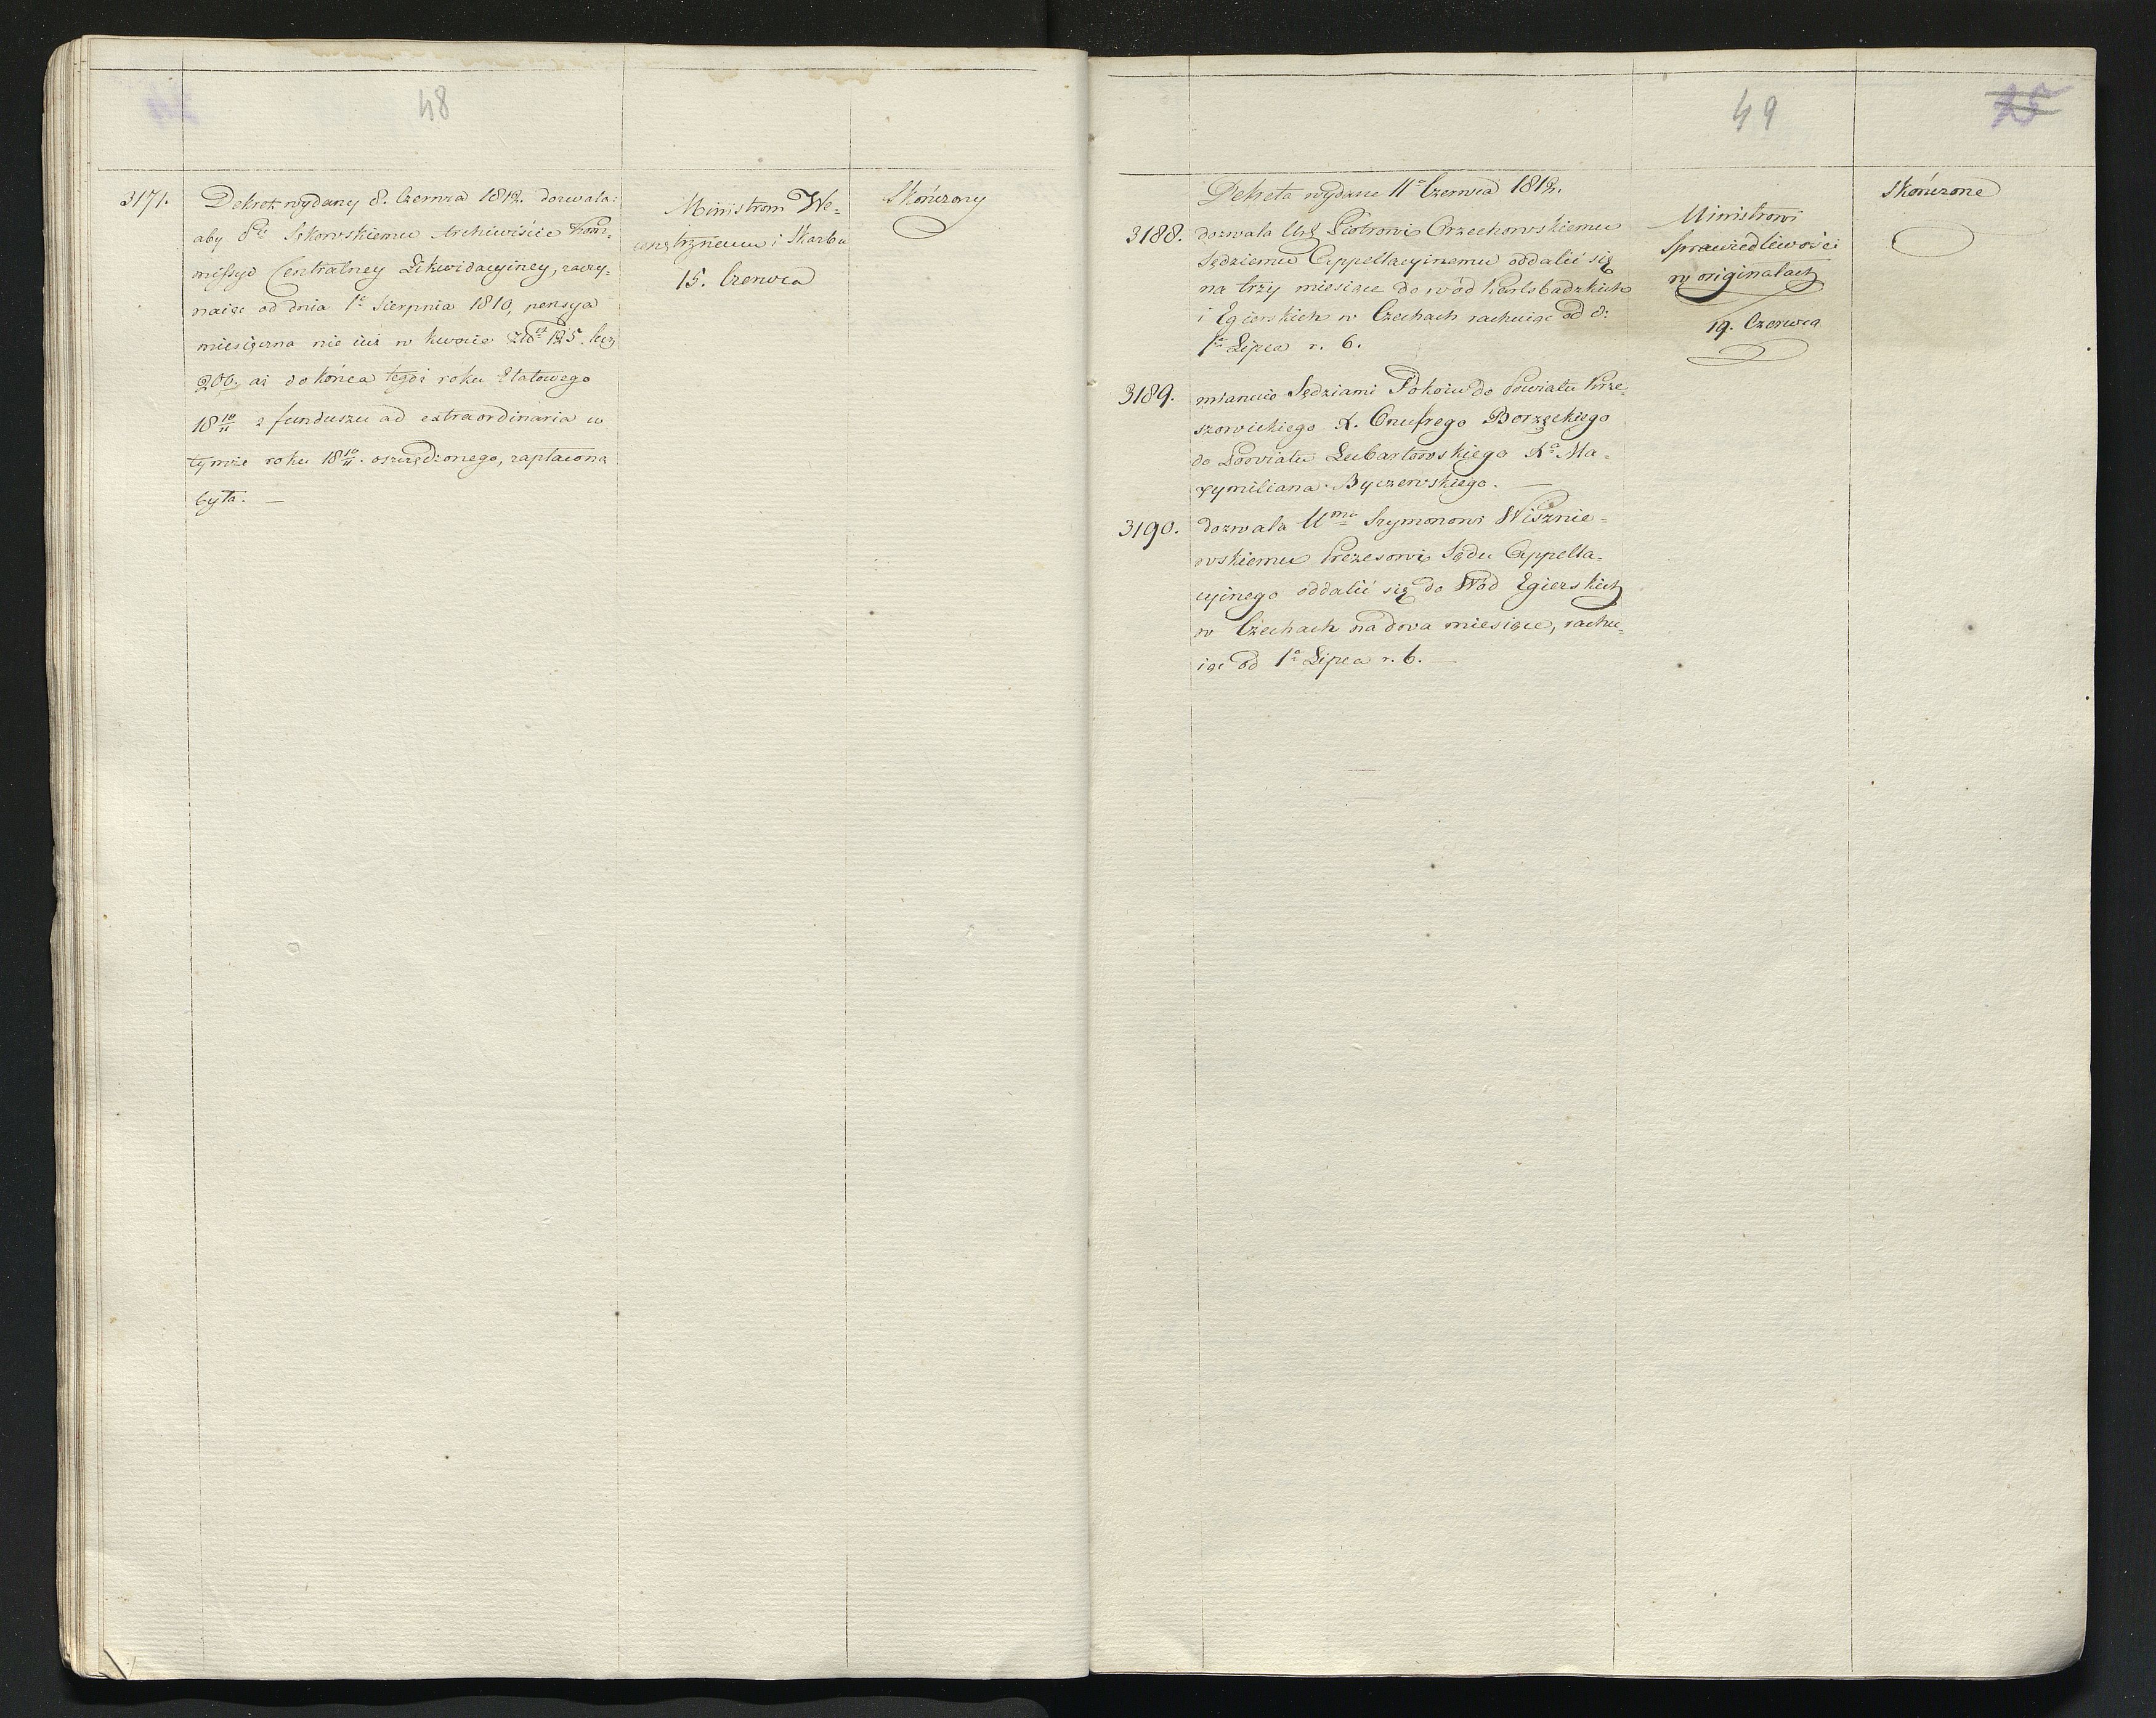 48
3171. Dekret wydany 8. Czerwca 1812. dozwala:
aby Sękowskiemu Archiwiście Kom-
missyi Centralney Likwidacyiney, zaczy-
naiąc od dnia 1o Sierpnia 1810, pensya
miesięczna nie iuż w kwocie 125. lecz
200. aż do końca tegoż roku Etatowego
18 10/11 z funduszu ad extraordinaria w
tymże roku 18 10/11. oszczędzonego, zapłacona
była. —
Ministrom We-
wnętrznemu i Skarbu
15. Czerwca
Skończony
49
25
Dekreta wydane 11o Czerwca 1812.
3188. dozwala Piotrowi Orzechowskiemu
Sędziemu Appellacyinemu oddalić się
na trzy miesiące do wód Karlsbadzkich
i Egierskich w Czechach rachuiąc od d:
1o Lipca r. b.
3189. mianuie Sędziami Pokoiu do Powiatu Krze-
szowickiego X. Onufrego Borzęckiego
do Powiatu Lubartowskiego Ma-
xymiliana Byczewskiego. —
3190. dozwala Szymonowi Wisznie-
wskiemu Prezesowi Sądu Appella-
cyinego oddalić się do Wód Egierskich
w Czechach na dwa miesiące, rachu-
iąc od 1o Lipca r. b. —
Ministrowi
Sprawiedliwości
w originałach
19. Czerwca
Skończone